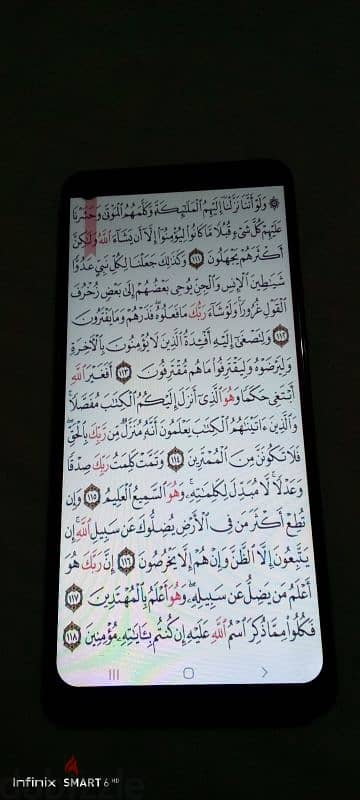 ۞ وَلَوْ أَنَّنَا نَزَّلْنَآ إِلَيْهِمُ ٱلْمَلَٰٓئِكَةَ وَكَلَّمَهُمُ ٱلْمَوْتَىٰ وَحَشَرْنَا
عَلَيْهِمْ كُلَّ شَىْءٍ قُبُلًا مَّا كَانُوا۟ لِيُؤْمِنُوٓا۟ إِلَّآ أَن يَشَآءَ ٱللَّهُ وَلَٰكِنَّ
أَكْثَرَهُمْ يَجْهَلُونَ ١١١ وَكَذَٰلِكَ جَعَلْنَا لِكُلِّ نَبِىٍّ عَدُوًّا
شَيَٰطِينَ ٱلْإِنسِ وَٱلْجِنِّ يُوحِى بَعْضُهُمْ إِلَىٰ بَعْضٍ زُخْرُفَ
ٱلْقَوْلِ غُرُورًا ۚ وَلَوْ شَآءَ رَبُّكَ مَا فَعَلُوهُ ۖ فَذَرْهُمْ وَمَا يَفْتَرُونَ
١١٢ وَلِتَصْغَىٰٓ إِلَيْهِ أَفْـِٔدَةُ ٱلَّذِينَ لَا يُؤْمِنُونَ بِٱلْءَاخِرَةِ
وَلِيَرْضَوْهُ وَلِيَقْتَرِفُوا۟ مَا هُم مُّقْتَرِفُونَ ١١٣ أَفَغَيْرَ ٱللَّهِ
أَبْتَغِى حَكَمًا وَهُوَ ٱلَّذِىٓ أَنزَلَ إِلَيْكُمُ ٱلْكِتَٰبَ مُفَصَّلًا ۚ
وَٱلَّذِينَ ءَاتَيْنَٰهُمُ ٱلْكِتَٰبَ يَعْلَمُونَ أَنَّهُۥ مُنَزَّلٌ مِّن رَّبِّكَ بِٱلْحَقِّ ۖ
فَلَا تَكُونَنَّ مِنَ ٱلْمُمْتَرِينَ ١١٤ وَتَمَّتْ كَلِمَتُ رَبِّكَ صِدْقًا
وَعَدْلًا ۚ لَّا مُبَدِّلَ لِكَلِمَٰتِهِۦ ۚ وَهُوَ ٱلسَّمِيعُ ٱلْعَلِيمُ ١١٥ وَإِن
تُطِعْ أَكْثَرَ مَن فِى ٱلْأَرْضِ يُضِلُّوكَ عَن سَبِيلِ ٱللَّهِ ۚ إِن
يَتَّبِعُونَ إِلَّا ٱلظَّنَّ وَإِنْ هُمْ إِلَّا يَخْرُصُونَ ١١٦ إِنَّ رَبَّكَ هُوَ
أَعْلَمُ مَن يَضِلُّ عَن سَبِيلِهِۦ ۖ وَهُوَ أَعْلَمُ بِٱلْمُهْتَدِينَ ١١٧
فَكُلُوا۟ مِمَّا ذُكِرَ ٱسْمُ ٱللَّهِ عَلَيْهِ إِن كُنتُم بِـَٔايَٰتِهِۦ مُؤْمِنِينَ ١١٨
Infinix SMART 6 HD
dubizzle